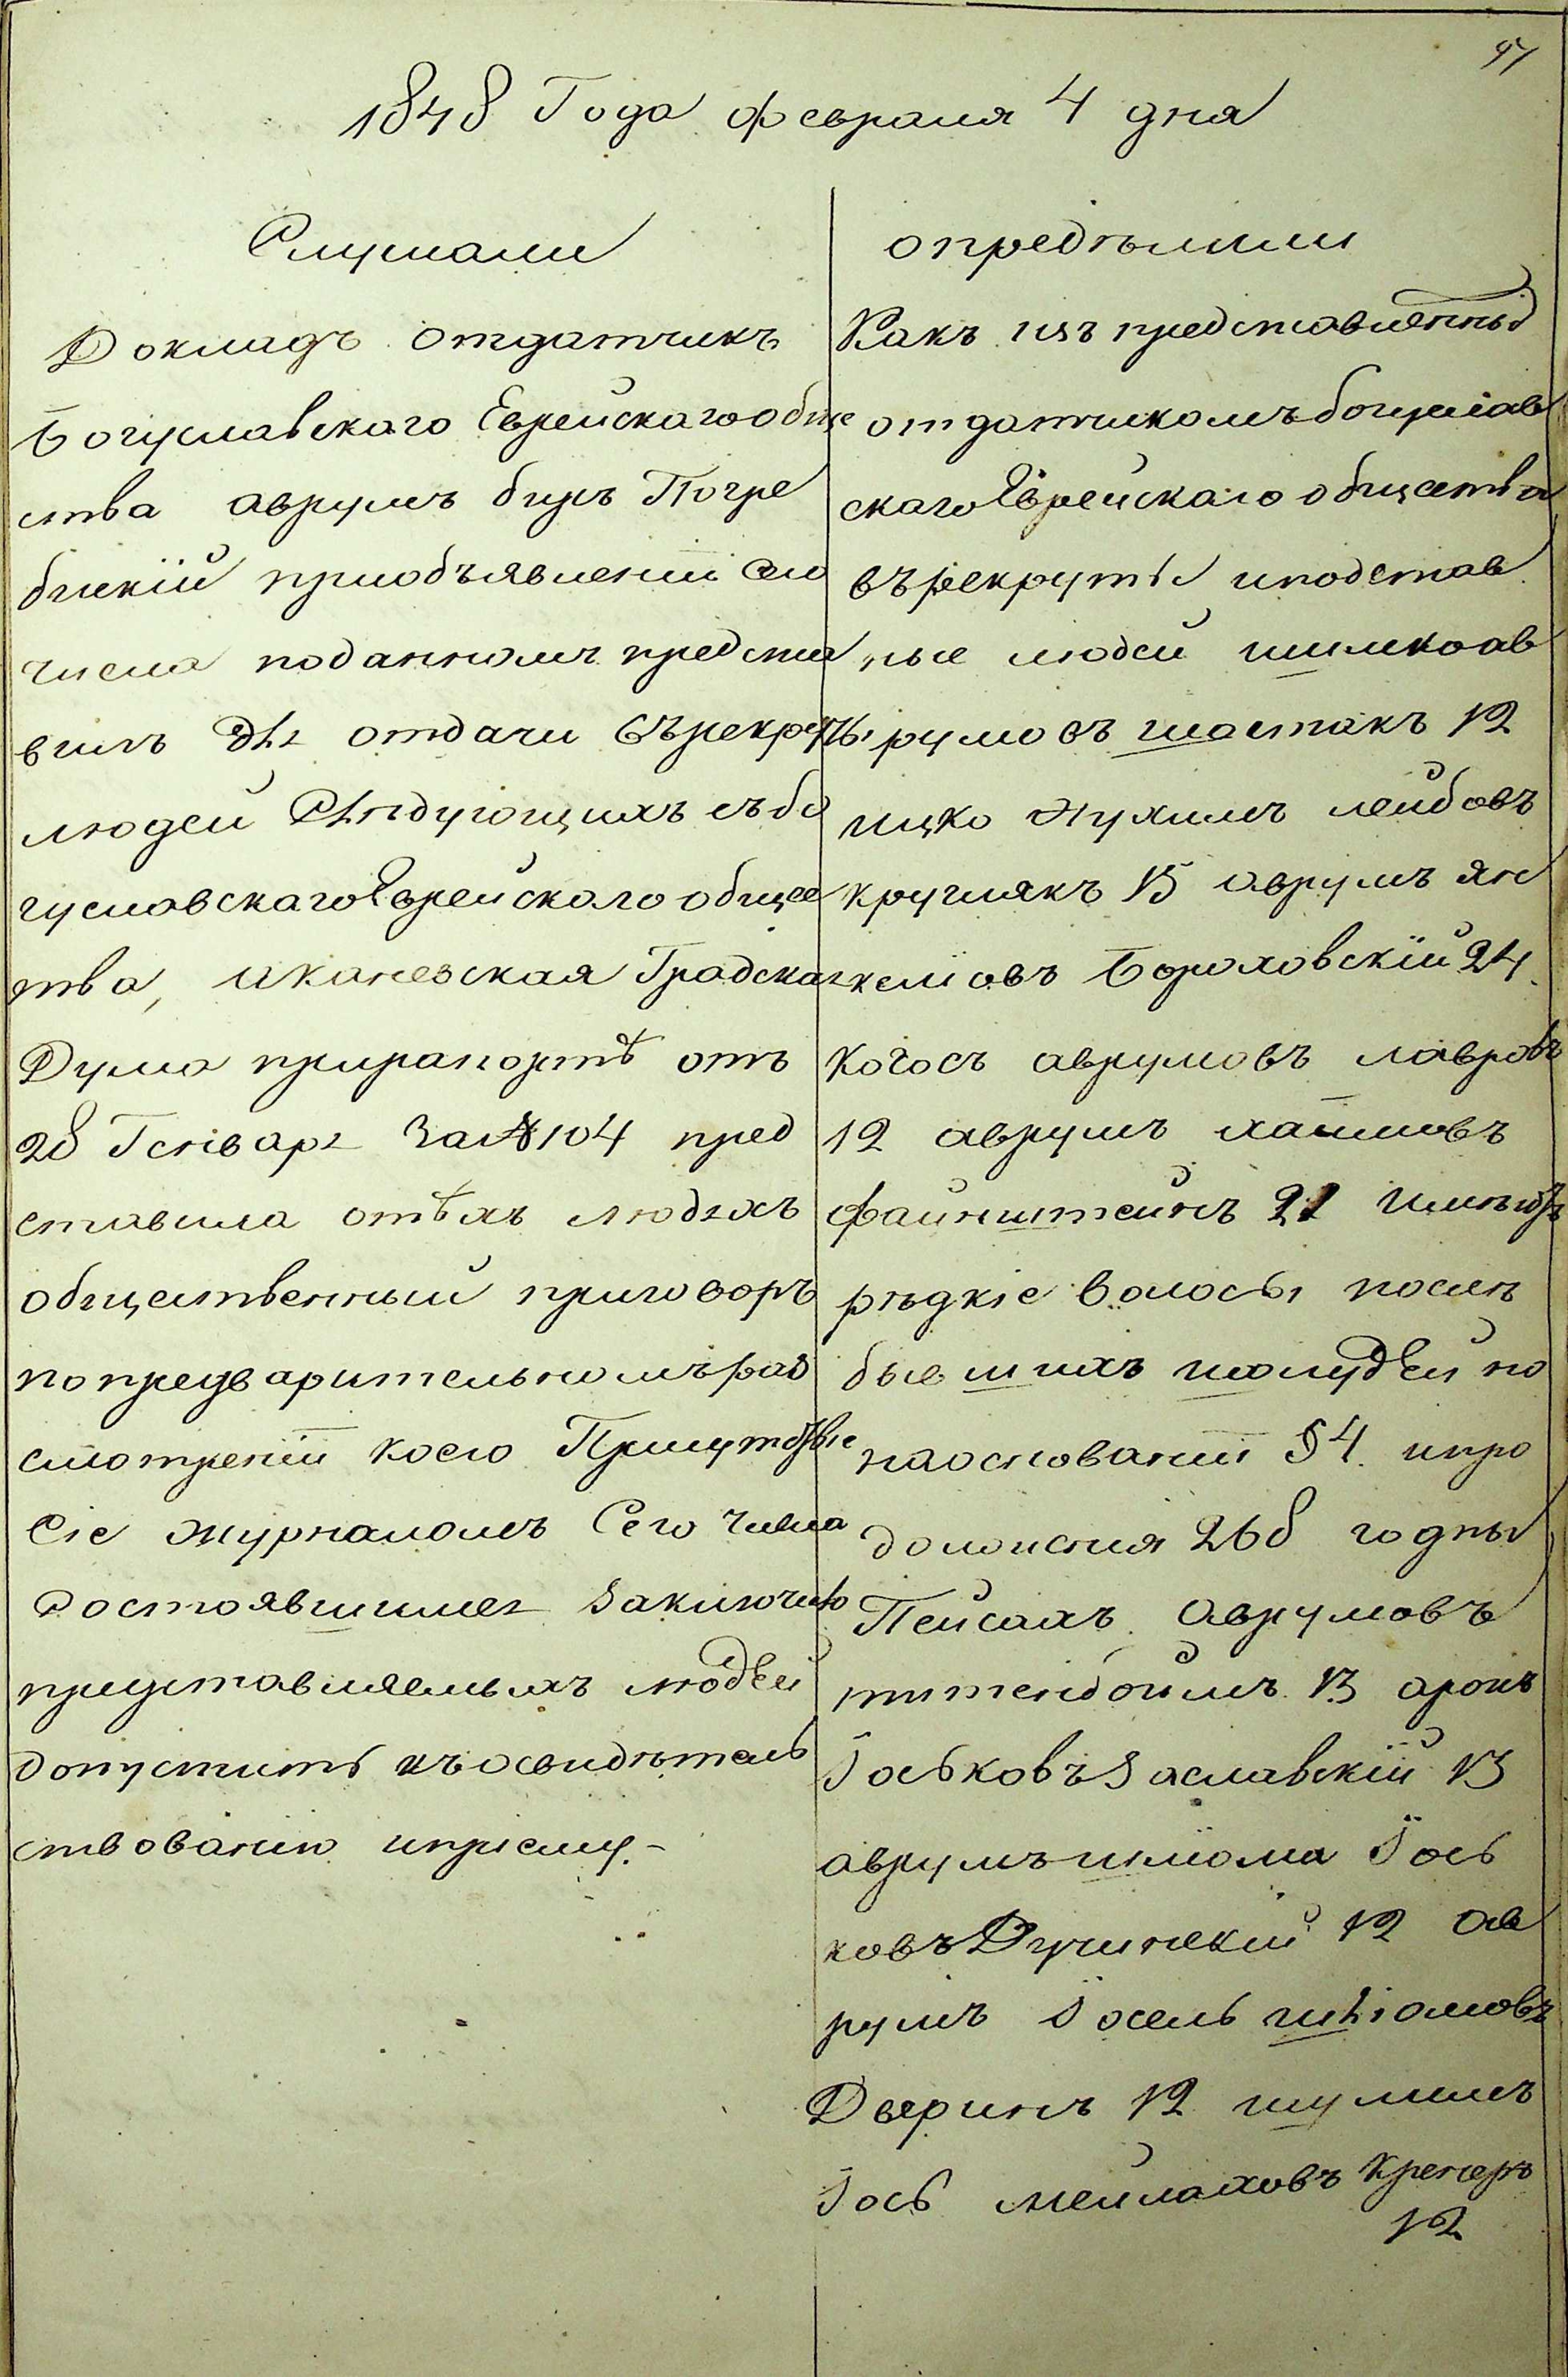 97
1848 Года февраля 4 дня
Слушали
Докладъ отдатчикъ
Богуславскаго Еврейскаго обще
ства аврумъ беръ Погре
бискій приобъявленіи сего
числа поданномъ предста
вилъ для отдачи върекруты
людей слѣдующихъ събо
гуславскаго Еврейскаго общес
тва, иканевская Градская
Дума прирапортѣ отъ
28 Генваря За№104 пред
ставила отѣхъ людяхъ
общественный приговоръ
попредварительномъ раз
смотреніи коего Присутствіе
Сіе журналомъ Сего числа
состоявшимся заключило
представляемыхъ людей
допустить къосвидѣтель
ствованію ипріему.-
опредѣлили
Какъ изъ представленныхъ
отдатчикомъ богуслав
скаго Еврейскаго общества
въ рекруты иподстав
ные людей шимко ав
румовъ шостакъ 12
ицко нухимъ лейбовъ
круглякъ 15 аврумъ ян
келіовъ Бороховскій 24
когосъ аврумовъ лавровъ
12 аврумъ хаимовъ
файнштейнъ 21 имѣютъ
рѣдкіе волосы послѣ
бывшихъ шолудей но
наоснованіи §4. ипро
долженія 268 годны
Пейсахъ Аврумовъ
13 аронъ
Іоськовъ Заславскій 13
аврумъ шліома Іось
ковъ Дучинскій 12 Ав
румъ Іосель шліомовъ
Дверинъ 12 шулимъ
Іось мейлаховъ Кремеръ
12